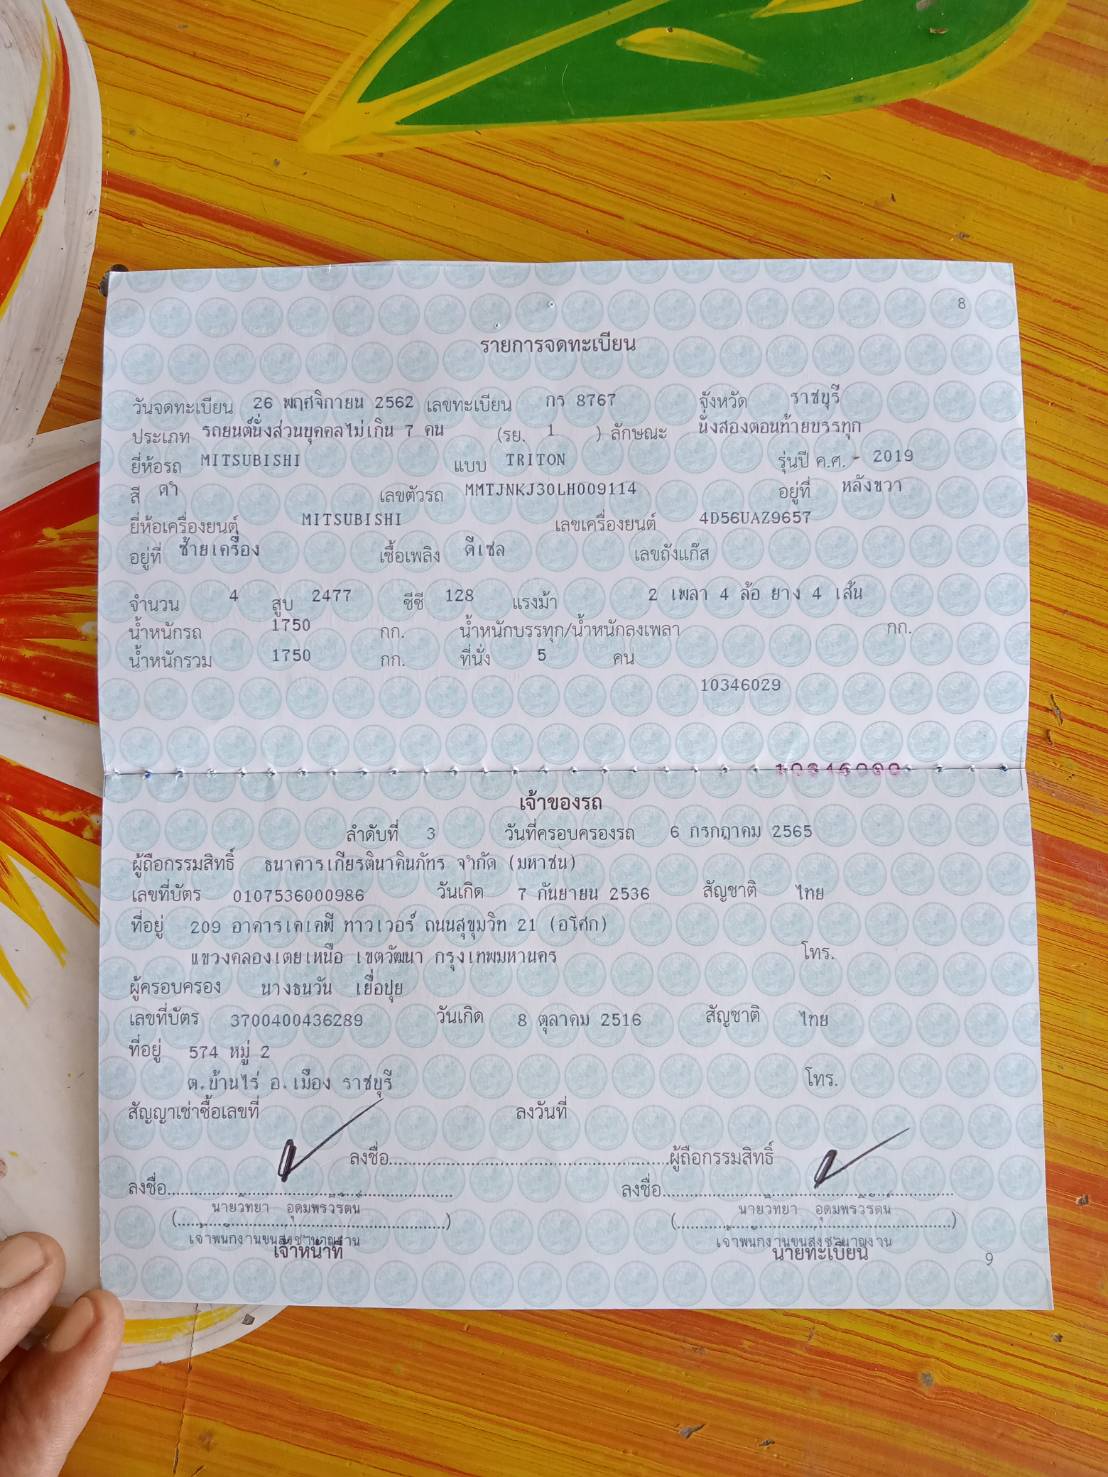 8
รายการจดทะเบียน
วันจดทะเบียน 26 พฤศจิกายน 2562 เลขทะเบียน กร 8767 จังหวัด ราชบุรี
ประเภท รถยนต์นั่งส่วนบุคคลไม่เกิน 7 คน (รย. 1 ) ลักษณะ นั่งสองตอนท้ายบรรทุก
ยี่ห้อรถ MITSUBISHI แบบ TRITON รุ่นปี ค.ศ. - 2019
สี ดำ เลขตัวรถ MMTJNKJ30LH009114 อยู่ที่ หลังขวา
ยี่ห้อเครื่องยนต์ MITSUBISHI เลขเครื่องยนต์ 4D56UAZ9657
อยู่ที่ ซ้ายเครื่อง เชื้อเพลิง ดีเซล เลขถังแก๊ส
จำนวน 4 สูบ 2477 ซีซี 128 แรงม้า 2 เพลา 4 ล้อ ยาง 4 เส้น
น้ำหนักรถ 1750 กก. น้ำหนักบรรทุก/น้ำหนักลงเพลา กก.
น้ำหนักรวม 1750 กก. ที่นั่ง 5 คน
10346029
เจ้าของรถ
ลำดับที่ 3 วันที่ครอบครองรถ 6 กรกฎาคม 2565
ผู้ถือกรรมสิทธิ์ ธนาคารเกียรตินาคินภัทร จำกัด (มหาชน)
เลขที่บัตร 0107536000986 วันเกิด 7 กันยายน 2536 สัญชาติ ไทย
ที่อยู่ 209 อาคารเคเคพี ทาวเวอร์ ถนนสุขุมวิท 21 (อโศก)
แขวงคลองเตยเหนือ เขตวัฒนา กรุงเทพมหานคร โทร.
ผู้ครอบครอง นางธนวัน เยื่อปุย
เลขที่บัตร 3700400436289 วันเกิด 8 ตุลาคม 2516 สัญชาติ ไทย
ที่อยู่ 574 หมู่ 2
ต.บ้านไร่ อ.เมือง ราชบุรี โทร.
สัญญาเช่าซื้อเลขที่ ลงวันที่
ลงชื่อ............................ผู้ถือกรรมสิทธิ์
ลงชื่อ............................ ลงชื่อ............................
(นายวิทยา อุดมพรวิรัตน์) (นายวิทยา อุดมพรวิรัตน์)
เจ้าพนักงานขนส่งชำนาญงาน เจ้าพนักงานขนส่งชำนาญงาน
เจ้าหน้าที่ นายทะเบียน
9